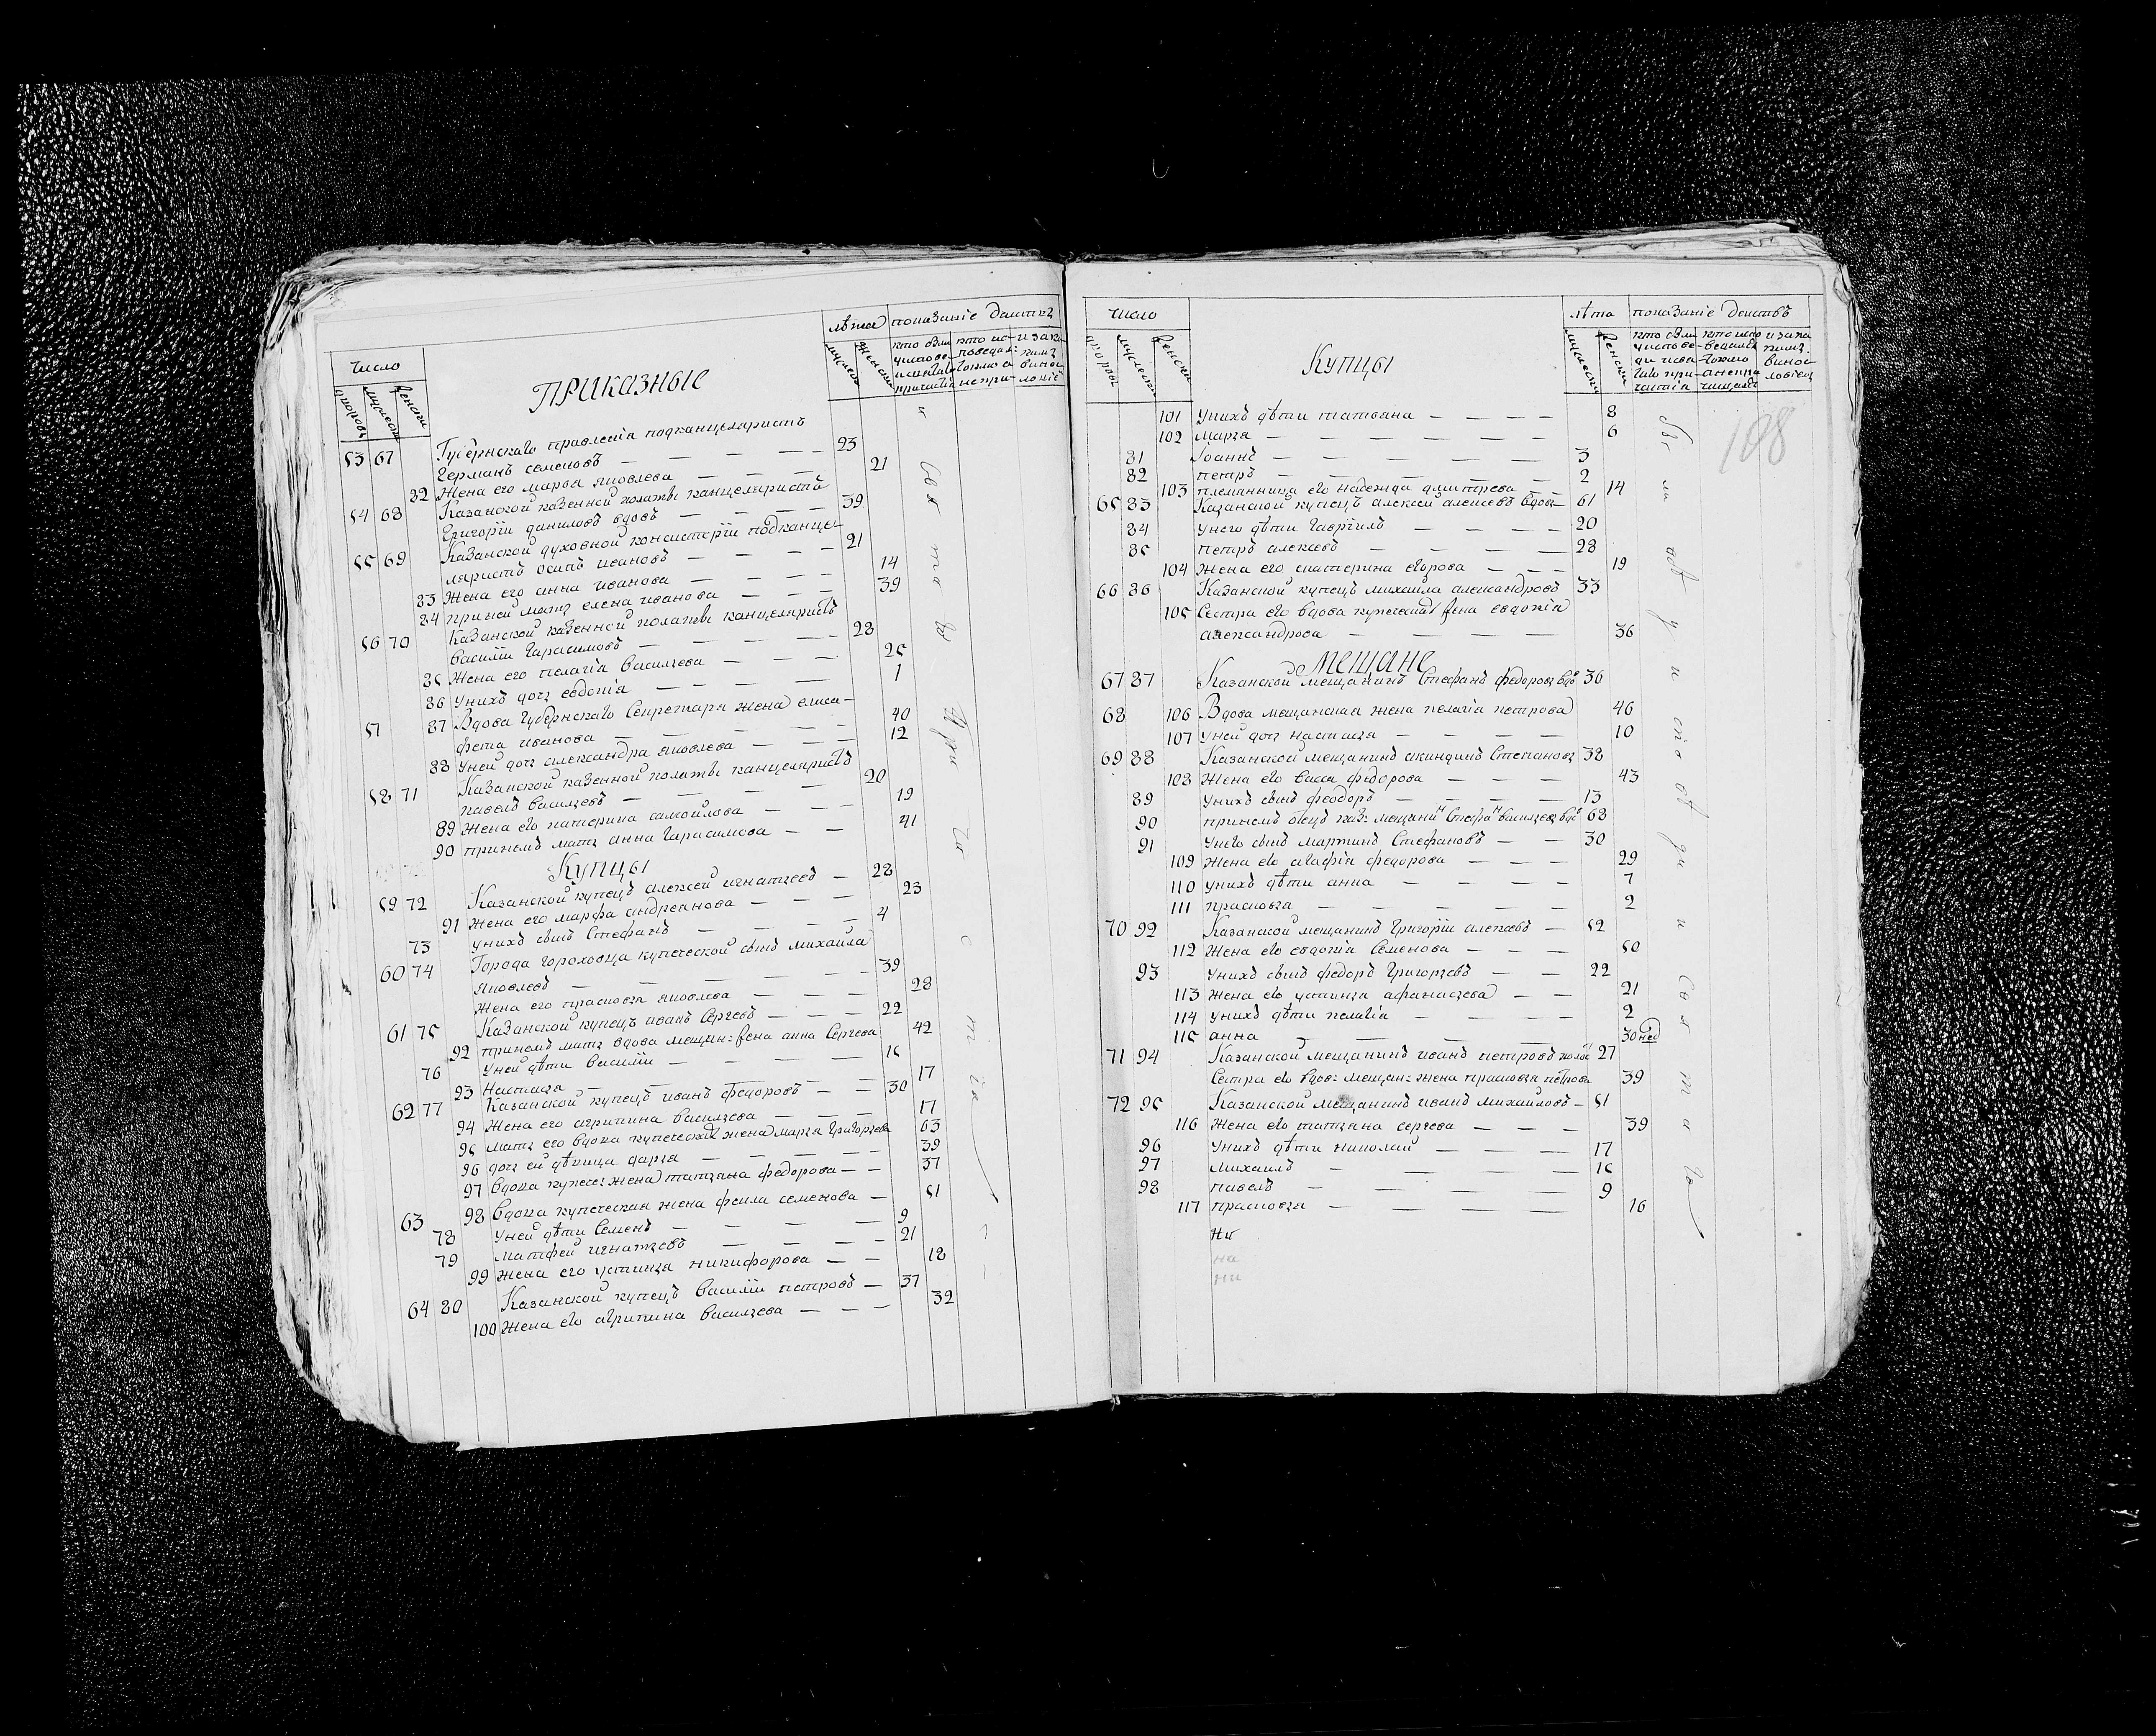 число
дворовъ
мужеска
женска
ПРИКАЗНЫЕ
лѣта
показаніе
мужеска
женска
53 67 Губернскаго правленія подканцеляристъ
Германъ семеновъ — 23
82 Жена его марѳа яковлева — 21
54 68 Казанской казенной полаты канцеляристъ
Григорій даниловъ вдовъ — 39
55 69 Казанской духовной консисторіи подканце-
ляристъ осипъ ивановъ — 21
83 Жена его анна иванова — 14
84 принем мать елена иванова — 39
56 70 Казанской казенной полаты канцеляристъ
василій Гарасимовъ — 28
85 Жена его пелагія васильева — 25
86 унихъ дочь евдокія — 1
57 87 Вдова Губернскаго Секретаря жена елиса-
фета иванова — 40
88 Уней дочь александра яковлева — 12
58 71 Казанской казенной полаты канцеляристъ
павелъ васильевъ — 20
89 Жена его катерина самойлова — 19
90 принемъ мать анна Гарасимова — 41
Купцы
59 72 Казанской купецъ алексей игнатьевъ — 28
91 Жена его марфа андреянова — 23
73 унихъ сынъ Стефанъ — 4
60 74 Города Гороховца купеческой сынъ михаила
яковлевъ — 39
Жена его прасковья яковлева — 28
61 75 Казанской купецъ иванъ Сергеевъ — 22
92 принемъ мать вдова мещан: жена анна Сергеева 42
76 Уней дѣти василій — 15
93 Настасья — 17
62 77 Казанской купецъ иванъ федоровъ — 30
94 Жена его агрипина васильева — 17
95 мать его вдова купеческая жена марья Григорьева 63
96 дочь ей дѣвица дарья — 39
97 вдова купече: жена татьяна федорова — 37
63 98 вдова купеческая жена фекла семенова — 51
78 Уней дѣти Семенъ — 9
79 матфей игнатьевъ — 21
99 Жена его устинья никифорова — 18
64 80 Казанской купецъ василій петровъ — 37
100 Жена его агрипина васильева — 32
число
дворовъ
мужеска
женска
Купцы
лѣта
показаніе действъ
мужеска
женска
108
101 Унихъ дѣти татьяна — 8
102 марья — 6
81 Іоаннъ — 3
82 петръ — 2
103 племянница его надежда дмитрева — 14
65 83 Казанской купецъ алексей алексеевъ вдовъ — 61
84 унего дѣти Гавріилъ — 20
85 петръ алексеевъ — 28
104 Жена его екатерина егорова — 19
66 86 Казанской купецъ михаила александровъ 33
105 Сестра его вдова купеческая жена евдокія
александрова — 36
Мещане
67 87 Казанской мещанинъ Стефанъ федоровъ вдо 36
68 106 Вдова мещанская жена пелагія петрова 46
107 уней дочь настасья — 10
69 88 Казанской мещанинъ акиндинъ Степановъ 38
108 Жена его васса федорова — 43
89 унихъ сынъ феодоръ — 13
90 принемъ отецъ каз: мещанинъ Стефанъ васильевъ вдо 68
91 Унего сынъ мартинъ Стефановъ — 30
109 Жена его агафія федорова — 29
110 унихъ дѣти анна — 7
111 прасковья — 2
70 92 Казанской мещанинъ Григорій алексеевъ — 52
112 Жена его евдокія Семенова — 50
93 Унихъ сынъ федоръ Григорьевъ — 22
113 Жена его устинья афанасьева — 21
114 Унихъ дѣти пелагія — 2
115 анна — 30 нед
71 94 Казанской мещанинъ иванъ петровъ холос 27
Сестра его вдов: мещан: жена прасковья петрова 39
72 95 Казанской мещанинъ иванъ михайловъ — 51
116 Жена его татьяна сергеева — 39
96 Унихъ дѣти николай — 17
97 михаилъ — 15
98 павелъ — 9
117 прасковья — 16